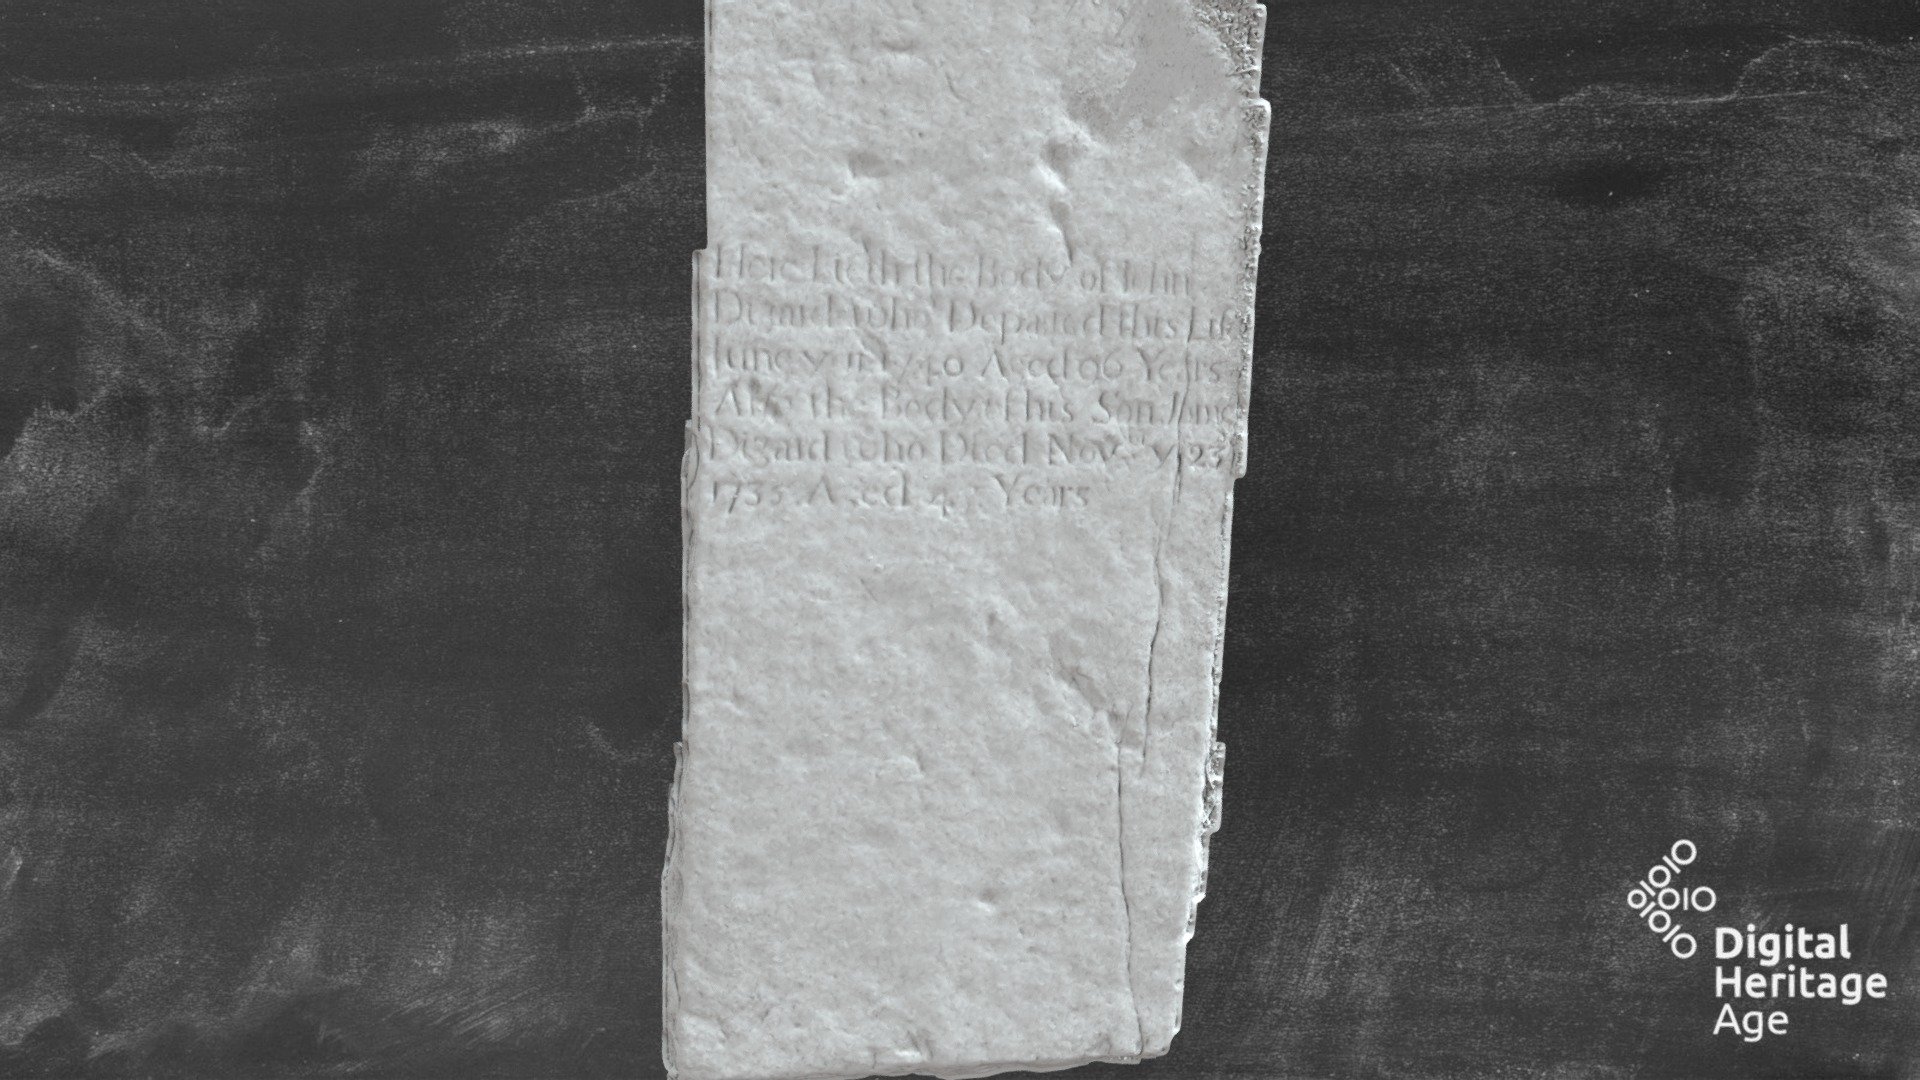 Here Lieth the Body of Iohn
Digard who Departed this Life
Iune ye 1740 Aged 96 Years
Also the Body of his Son Jame
Digard who Died Novr ye 23
Aged Years
Digital
Heritage
Age